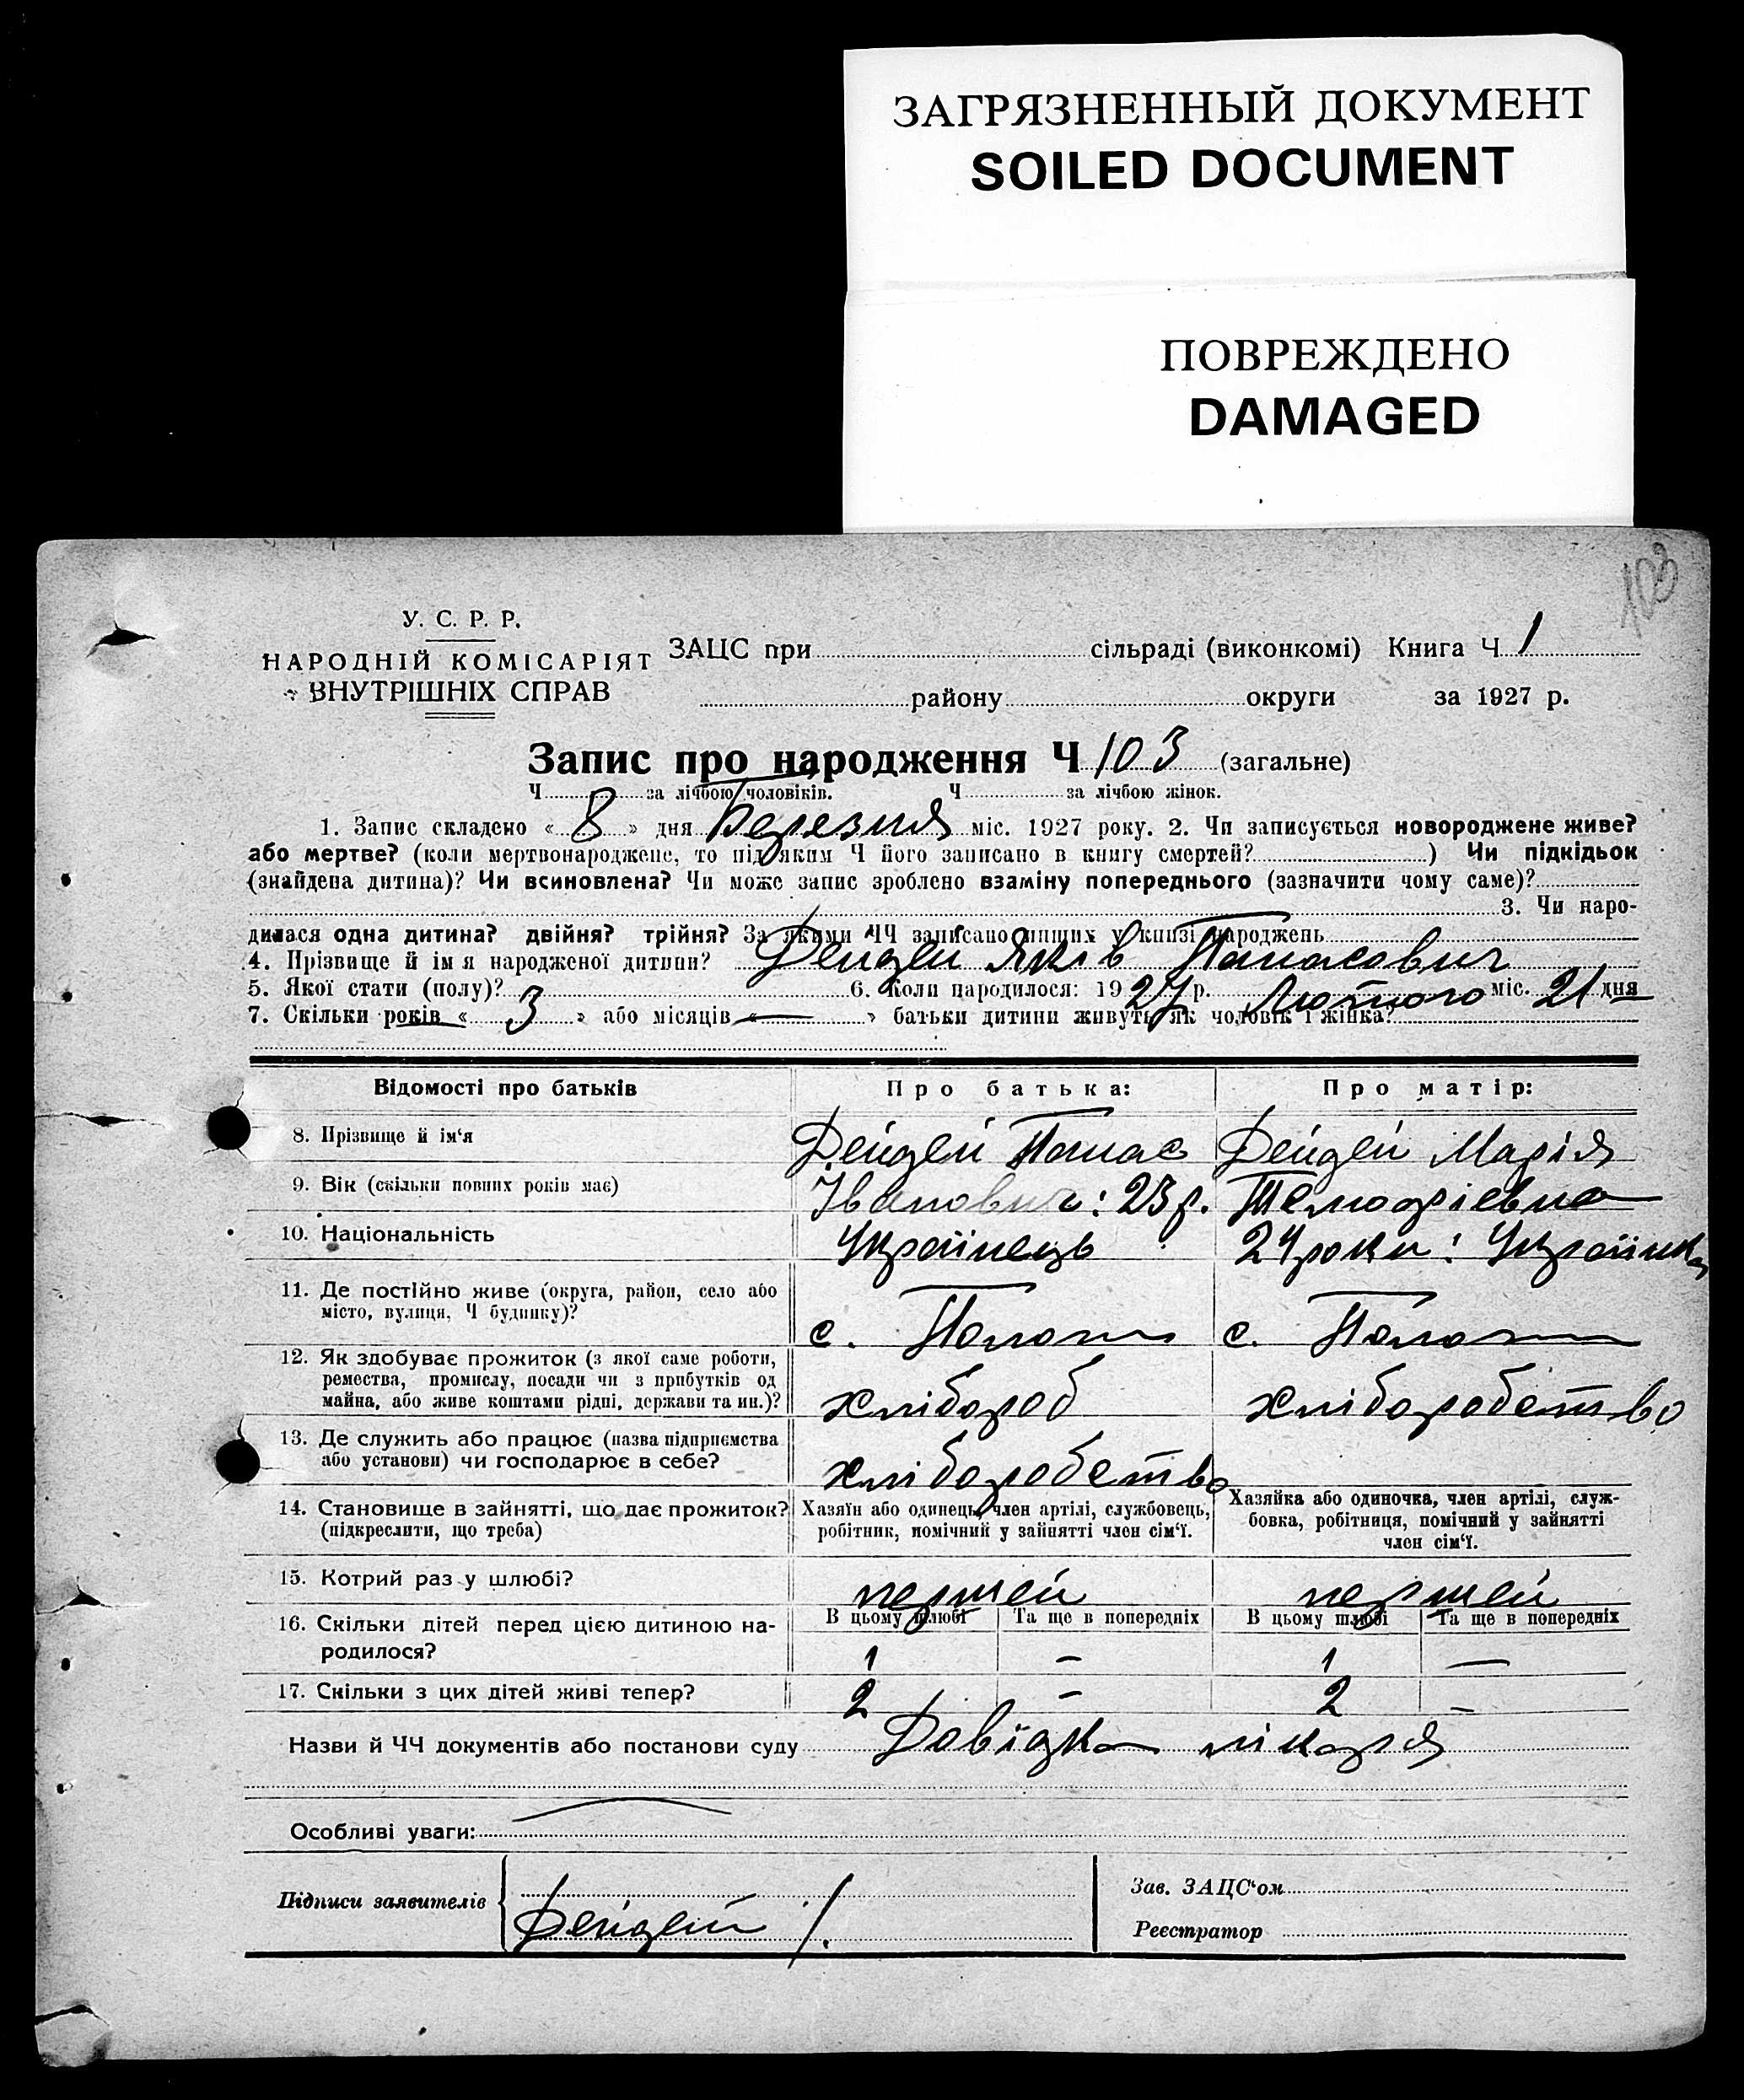 ЗАГРЯЗНЕННЫЙ ДОКУМЕНТ
SOILED DOCUMENT
ПОВРЕЖДЕНО
DAMAGED
103
У. С. Р. Р.
НАРОДНІЙ КОМІСАРІЯТ
ВНУТРІШНІХ СПРАВ
ЗАЦС при сільраді (виконкомі) Книга Ч 1
району округи за 1927 р.
Запис про народження Ч 103 (загальне)
Ч за лічбою чоловіків. Ч за лічбою жінок.
1. Запис складено « 8 » дня Березня міс. 1927 року. 2. Чи записується новороджене живе?
або мертве? (коли мертвонароджене, то під яким Ч його записано в книгу смертей? ) Чи підкідьок
(знайдена дитина)? Чи всиновлена? Чи може запис зроблено взаміну попереднього (зазначити чому саме)?
3. Чи наро-
дилася одна дитина? двійня? трійня? За якими ЧЧ записано инших у книзі народжень
4. Прізвище й ім я народженої дитини? Дейдей Яків Панасович
5. Якої стати (полу)? 6. Коли народилося: 1927 р. Лютого міс. 21 дня
7. Скільки років « 3 » або місяців « — » батьки дитини живуть як чоловік і жінка?
Відомості про батьків Про батька: Про матір:
8. Прізвище й ім‘я Дейдей Панас Дейдей Марія
9. Вік (скільки повних років має) Іванович: 23 р.
10. Національність Українець 24 роки: Українка
11. Де постійно живе (округа, район, село або
місто, вулиця, Ч будинку)?
с. с.
12. Як здобуває прожиток (з якої саме роботи,
ремества, промислу, посади чи з прибутків од
майна, або живе коштами рідні, держави та ин.)?
хлібороб хліборобство
13. Де служить або працює (назва підприємства
або установи) чи господарює в себе?
хліборобство
14. Становище в зайнятті, що дає прожиток?
(підкреслити, що треба)
Хазяїн або одинець, член артілі, службовець,
робітник, помічний у зайнятті член сім‘ї.
Хазяйка або одиночка, член артілі, служ-
бовка, робітниця, помічний у зайнятті
член сім‘ї.
15. Котрий раз у шлюбі? першей першей
В цьому шлюбі Та ще в попередніх В цьому шлюбі Та ще в попередніх
16. Скільки дітей перед цією дитиною на-
родилося?
1 – 1 —
17. Скільки з цих дітей живі тепер? 2 – 2 –
Назви й ЧЧ документів або постанови суду Довідка лікаря
Особливі уваги:
Підписи заявителів Дейдей
Зав. ЗАЦС‘ом
Реєстратор